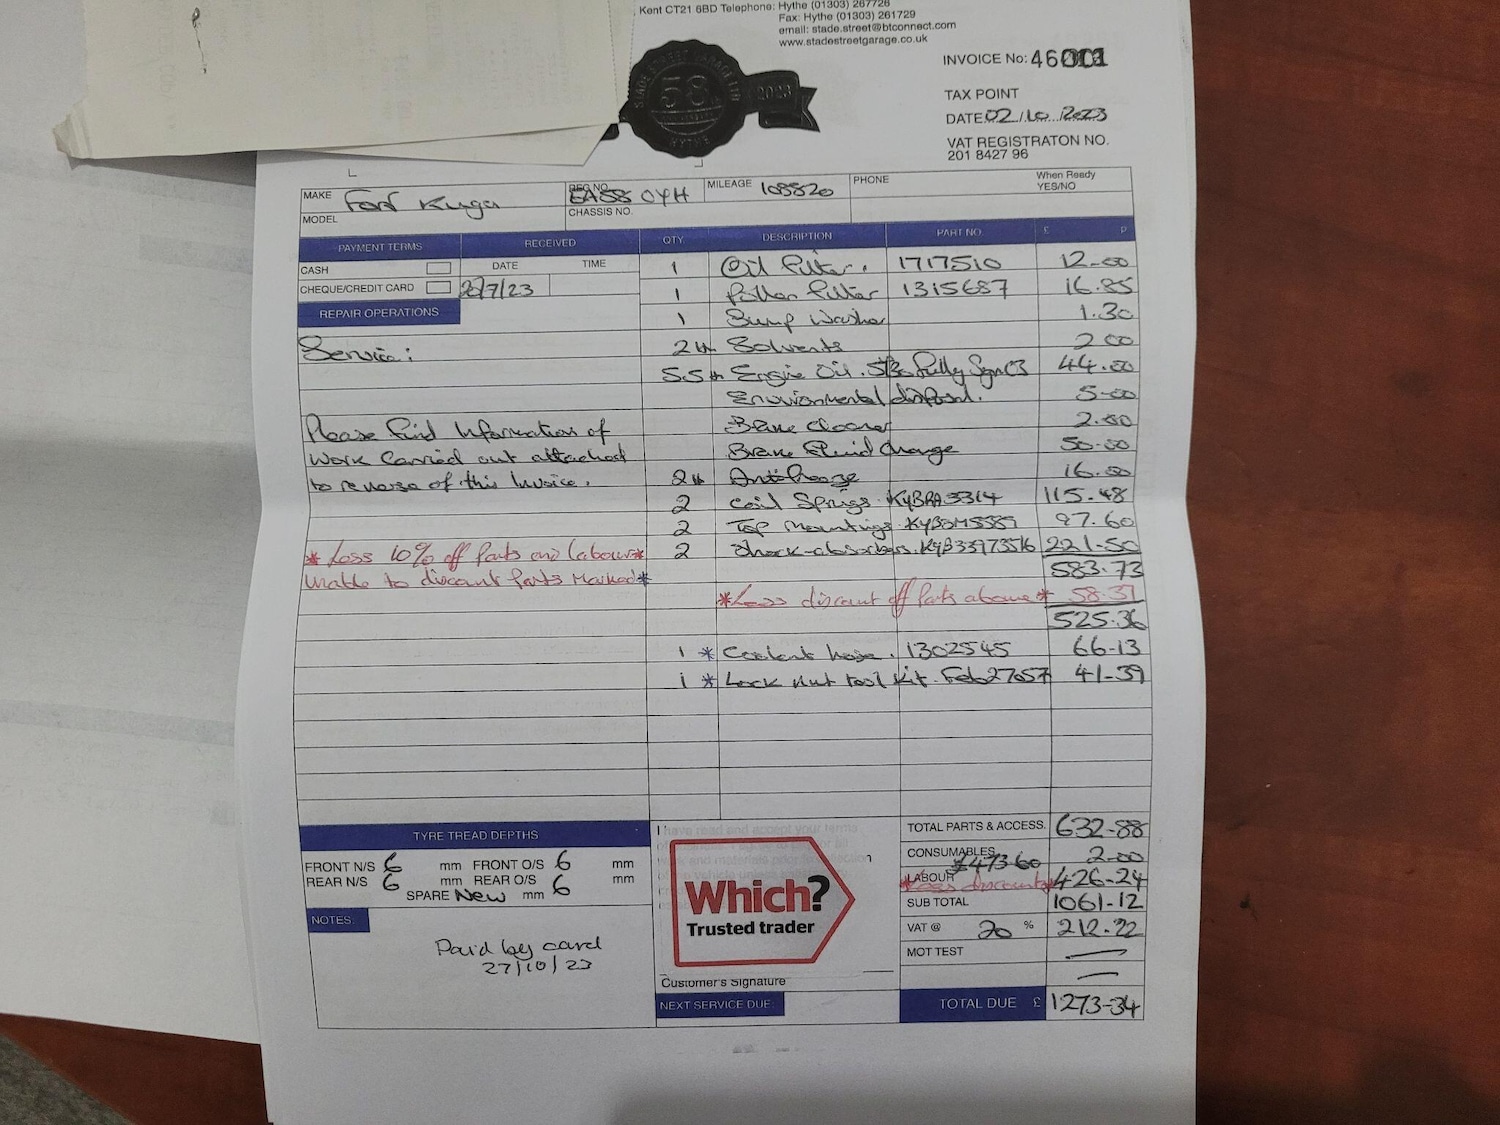 Kent CT21 6BD Telephone: Hythe (01303) 267726
Fax: Hythe (01303) 261729
email: stade.street@btconnect.com
www.stadestreetgarage.co.uk
STADE STREET GARAGE LTD
58
2023
HYTHE
INVOICE No: 460
TAX POINT
DATE 02/10 2023
VAT REGISTRATON NO.
201 8427 96
MAKE Ford Kuga
MODEL
REG NO.
CHASSIS NO.
MILEAGE 108820
PHONE
When Ready
YES/NO
PAYMENT TERMS RECEIVED QTY DESCRIPTION PART NO. £ P
CASH DATE TIME
CHEQUE/CREDIT CARD /7/23
REPAIR OPERATIONS
1 Oil filter. 1717510 12-00
1 Pollen filter 1315687 16.85
1 Sump Washer 1.30
Service:
2 Solvents 2.00
5.5 Engine Oil. Fully 44.00
Environmental disposal. 5-00
Brake Cleaner 2.00
Brake Fluid Change 50-00
2 Antifreeze 16.00
2 Coil Springs. KYBRA3314 115.48
2 Top Mountings 97.60
2 Shock-absorbers. 221-50
583.73
Please find Information of
Work Carried out attached
to reverse of this Invoice.
* Less 10% off Parts and labour *
Unable to discount Parts Marked *
*Less discount off Parts above * 58.37
525.36
1 * Coolant hose. 1302545 66-13
1 * Lock nut tool kit. Feb27057 41-39
TYRE TREAD DEPTHS
FRONT N/S 6 mm FRONT O/S 6 mm
REAR N/S 6 mm REAR O/S 6 mm
SPARE New mm
NOTES:
Paid by card
27/10/23
Which?
Trusted trader
Customer's Signature
NEXT SERVICE DUE:
TOTAL PARTS & ACCESS. 632-88
CONSUMABLES 2.00
£473 60
LABOUR 426-24
*Less discount
SUB TOTAL 1061-12
VAT @ 20 % 212.22
MOT TEST
TOTAL DUE £ 1273-34